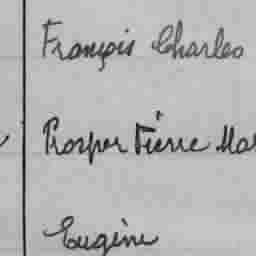 François Charles
Prosper Pierre Mar
Eugène